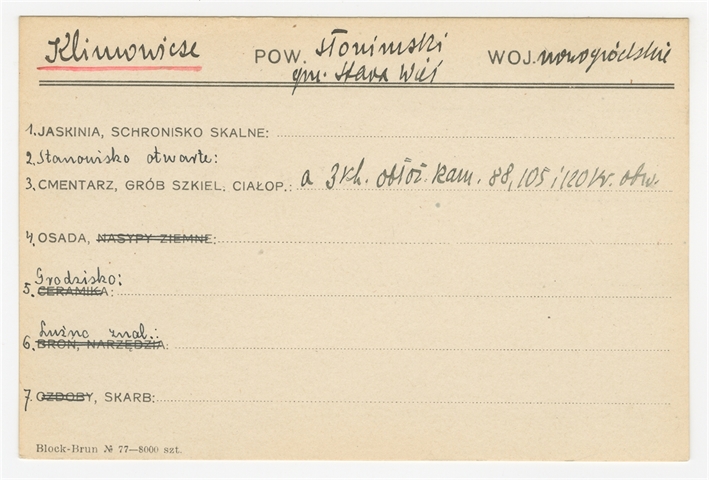 Klimowicze POW. słonimski WOJ. nowogródzkie
gm. Stara Wieś
1. JASKINIA, SCHRONISKO SKALNE:
2. Stanowisko otwarte:
3. CMENTARZ, GRÓB SZKIEL. CIAŁOP.: a 3 kh. obłoż. kam. 88, 105 i 120 kr. obw.
4. OSADA, NASYPY ZIEMNE:
Grodzisko:
5. CERAMIKA:
Luźno znal.:
6. BROŃ, NARZĘDZIA:
7. OZDOBY, SKARB:
Block-Brun № 77—8000 szt.